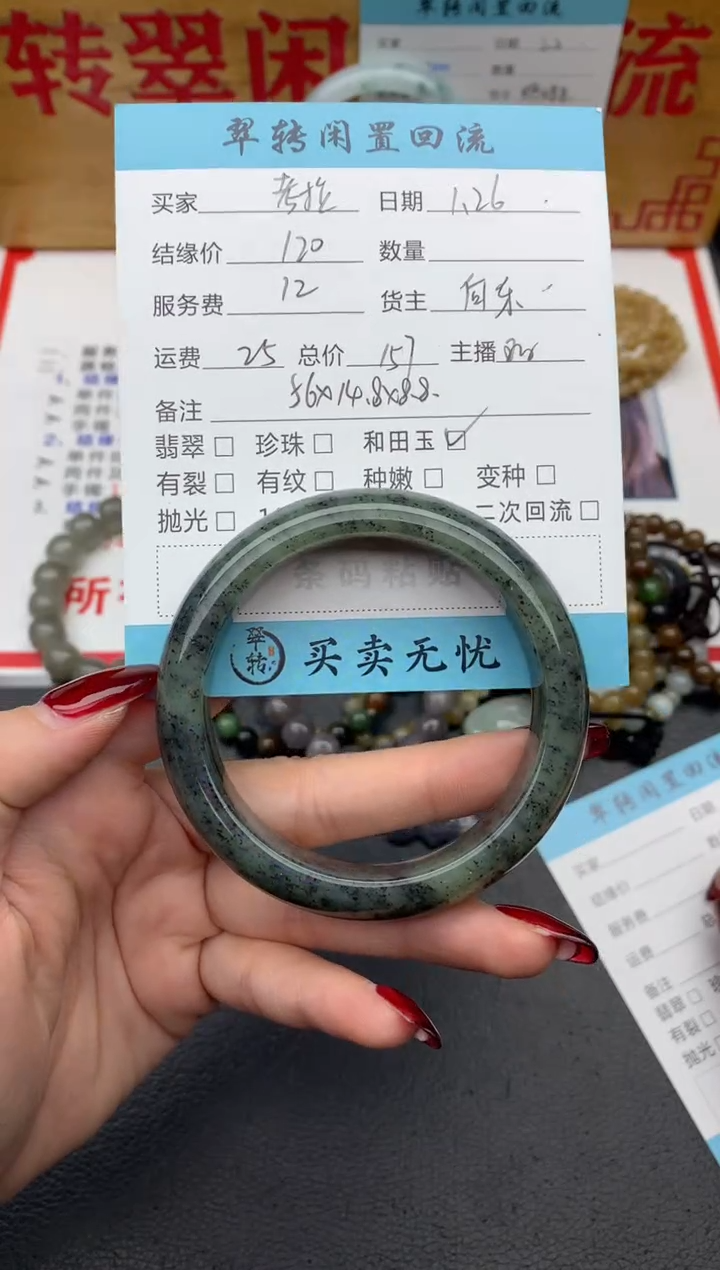 转翠闲
流
翠转闲置回流
翠转闲置回流
买家 考拉 日期 1.26
结缘价 120 数量
服务费 12 货主 向东
运费 25 总价 157 主播
备注 56×14.8×8.8
翡翠□ 珍珠□ 和田玉☑
有裂□ 有纹□ 种嫩□ 变种□
抛光□ 二次回流□
条码粘贴
翠转 买卖无忧
所
翠转闲置回流
买家 日期
结缘价
服务费
运费
备注
翡翠□
有裂□
抛光□